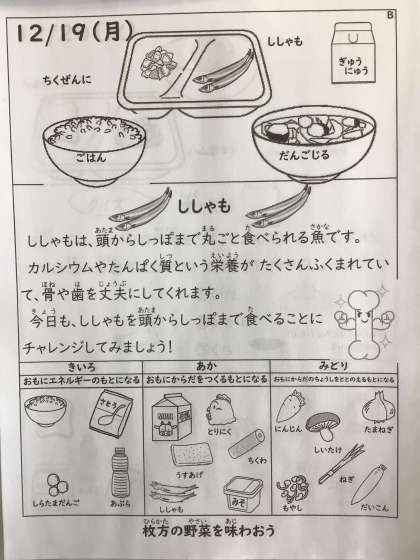 B
12/19(月)
ししゃも
ぎゅう
にゅう
ちくぜんに
ごはん
だんごじる
ししゃも
ししゃもは、頭からしっぽまで丸ごと食べられる魚です。
カルシウムやたんぱく質という栄養が たくさんふくまれてい
て、骨や歯を丈夫にしてくれます。
今日も、ししゃもを頭からしっぽまで食べることに
チャレンジしてみましょう!
きいろ
おもにエネルギーのもとになる
さとう
しらたまだんご
あぶら
あか
おもにからだをつくるもとになる
とりにく
うすあげ
ちくわ
ししゃも
みそ
みどり
おもにからだのちょうしをととのえるもとになる
にんじん
しいたけ
たまねぎ
ねぎ
もやし
だいこん
枚方の野菜を味わおう